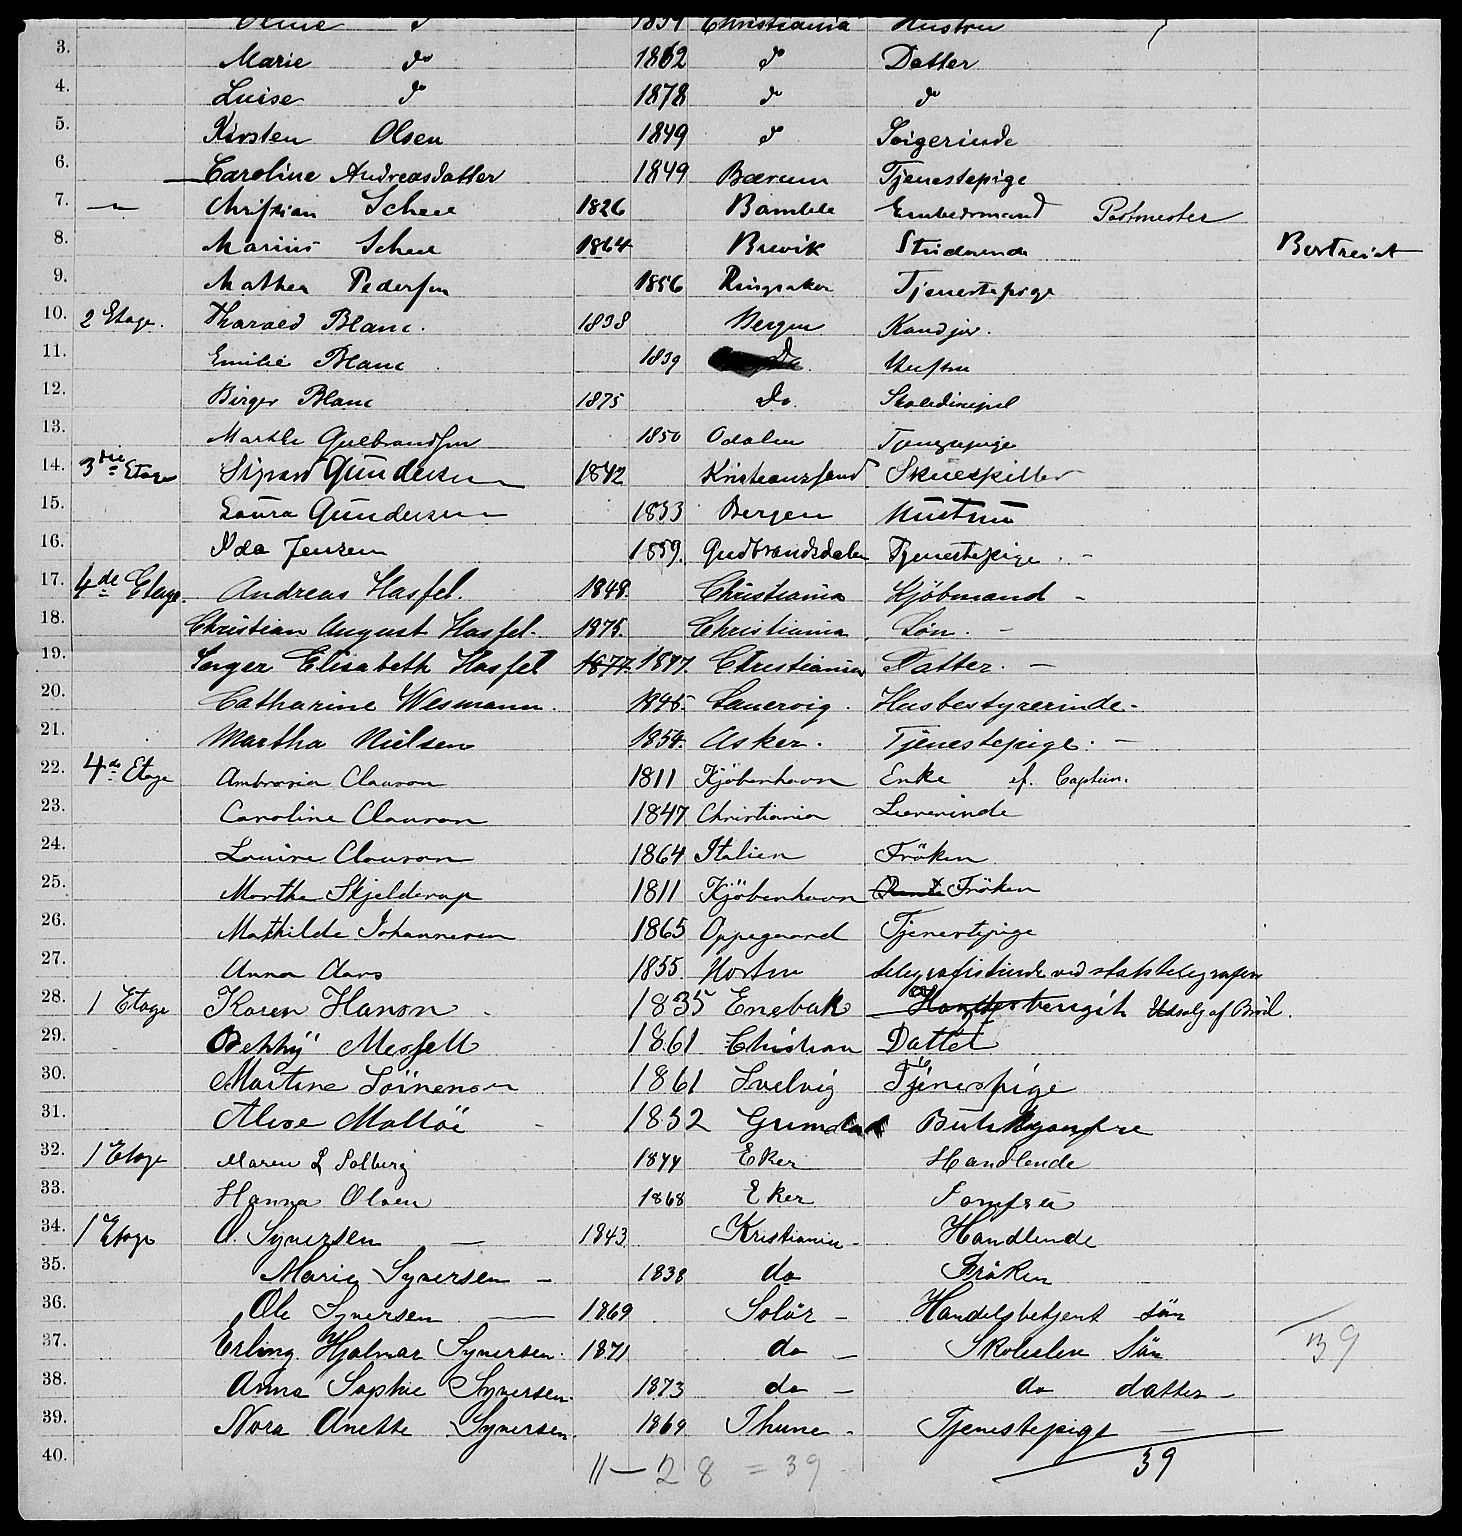 Christiania Hustru
3. Marie do 1862 do Datter
4. Luise do 1878 do do
5. Kirsten Olsen 1849 do Svigerinde
6. Caroline Andreasdatter 1849 Bærum Tjenestepige
7. Christian Scheel 1826 Bamble Embedsmand Postmester
8. Marius Scheel 1864 Brevik Studerende Bortreist
9. Mathea Pedersen 1856 Ringsaker Tjenestepige
10. 2 Etage. Harald Blanc. 1838 Bergen Kand jur.
11. Emilie Blanc 1839 do. Hustru
12. Birger Blanc 1875 do. Skoledisipel
13. Marthe Gulbrandsen 1850 Odalen Tjenestepige
14. 3die Etage Sigvard Gundersen 1842 Kristianssand Skuespiller
15. Laura Gundersen 1833 Bergen Hustru
16. Ida Jensen 1859. Gudbrandsdalen Tjenestepige. -
17. 4de Etage. Andreas Hasfel. 1848. Christiania Kjöbmand -
18. Christian August Hasfel. 1875. Christiania Sön. -
19. Inger Elisabeth Hasfel 1877. 1877. Christiania Datter. -
20. Catharine Wesmann. 1845. Laurvig. Husbestyrerinde.
21. Martha Nielsen 1854. Asker. Tjenestepige. -
22. 4de Etage Ambrosia Clauson 1811 Kjöbenhavn Enke ef. Captein.
23. Caroline Clauson 1847 Christiania Lærerinde
24. Louise Clauson 1864 Italien Fröken
25. Morthe Skjelderup 1811 Kjöbenhavn Fröken
26. Mathilde Johannesen 1865 Oppegaard Tjenestepige
27. Anna Aars 1855 Horten telegrafistinde ved statstelegrafen
28. 1 Etage Karen Hanson 1835 Enebak Udsalg af Bröd.
29. 1861 Christian Datter
30. Martine Sörenson 1861 Svelvig Tjenespige
31. Alise Moltöe 1852 Grimstad
32. 1 Etage Maren L Solberg 1844 Eker Handlende
33. Hanna Olsen 1868 Eker Jomfru
34. 1 Etage O. Syversen — 1843. Kristiania - Handlende
35. Marie Syversen - 1838 do Fröken
36. Ole Syversen — 1869 Solör - Handelsbetjent sön
37. Erling Hjalmar Syversen. 1871 do - Skoleelev Sön
38. Anna Sophie Syversen. 1873 do - do datter -
39. Nora Anette Syversen. 1869 Thune - Tjenestepige -
40.
11 — 28 = 39
39
39